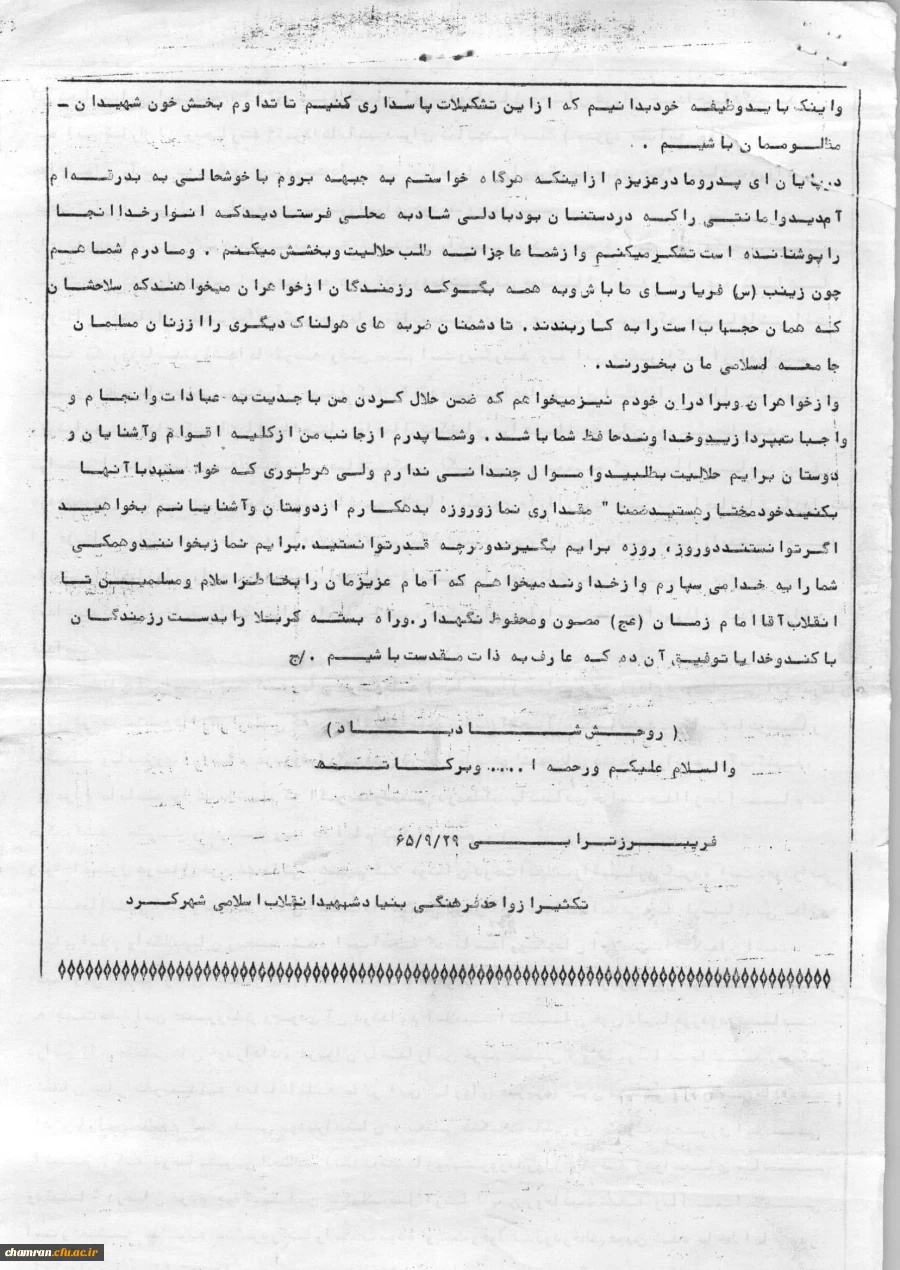 واینک بایدوظیفه خودبدانیم که ازاین تشکیلات پاسداری کنیم تاتداوم بخش خون شهیدان ـ
مظلوممان باشیم .
درپایان ای پدرومادرعزیزم ازاینکه هرگاه خواستم به جبهه بروم باخوشحالی به بدرقه ام
آمدیدوامانتی راکه دردستتان بودبادلی شادبه محلی فرستادیدکه انوارخداآنجا
راپوشانده است تشکرمیکنم وازشماعاجزانه طلب حلالیت وبخشش میکنم . ومادرم شماهم
چون زینب (س) فریادرسای ماباش وبه همه بگوکه رزمندگان ازخواهران میخواهندکه سلاحشان
که همان حجاب است رابه کاربندند. تادشمنان ضربه های هولناک دیگری راازنان مسلمان
جامعه اسلامی مان بخورند.
وازخواهران وبرادران خودم نیزمیخواهم که ضمن حلال کردن من باجدیت به عبادات وانجام و
واجبات بپردازیدوخداوندحافظ شماباشد . وشماپدرم ازجانب من ازکلیه اقوام وآشنایان و
دوستان برایم حلالیت بطلبیدواموال چندانی ندارم ولی هرطوری که خواستیدباآنها
بکنیدخودمختارهستیدضمنا" مقداری نمازوروزه بدهکارم ازدوستان وآشنایانم بخواهید
اگرتوانستنددوروز، روزه برایم بگیرندوهرچه قدرتوانستید.برایم نمازبخوانندوهمگی
شمارابه خدامی سپارم وازخداوندمیخواهم که امام عزیزمان رابخاطراسلام ومسلمین تا
انقلاب آقاامام زمان (عج) مصون ومحفوظ نگهدار.وراه بسته کربلا رابدست رزمندگان
بازکندوخدایاتوفیق آن ده که عارف به ذات مقدست باشیم ./ج
( روحش شادباد)
والسلام علیکم ورحمه ا..... وبرکاته
فریبرزترابی ۶۵/۹/۲۹
تکثیرازواحدفرهنگی بنیادشهیدانقلاب اسلامی شهرکرد
chamran.cfu.ac.ir